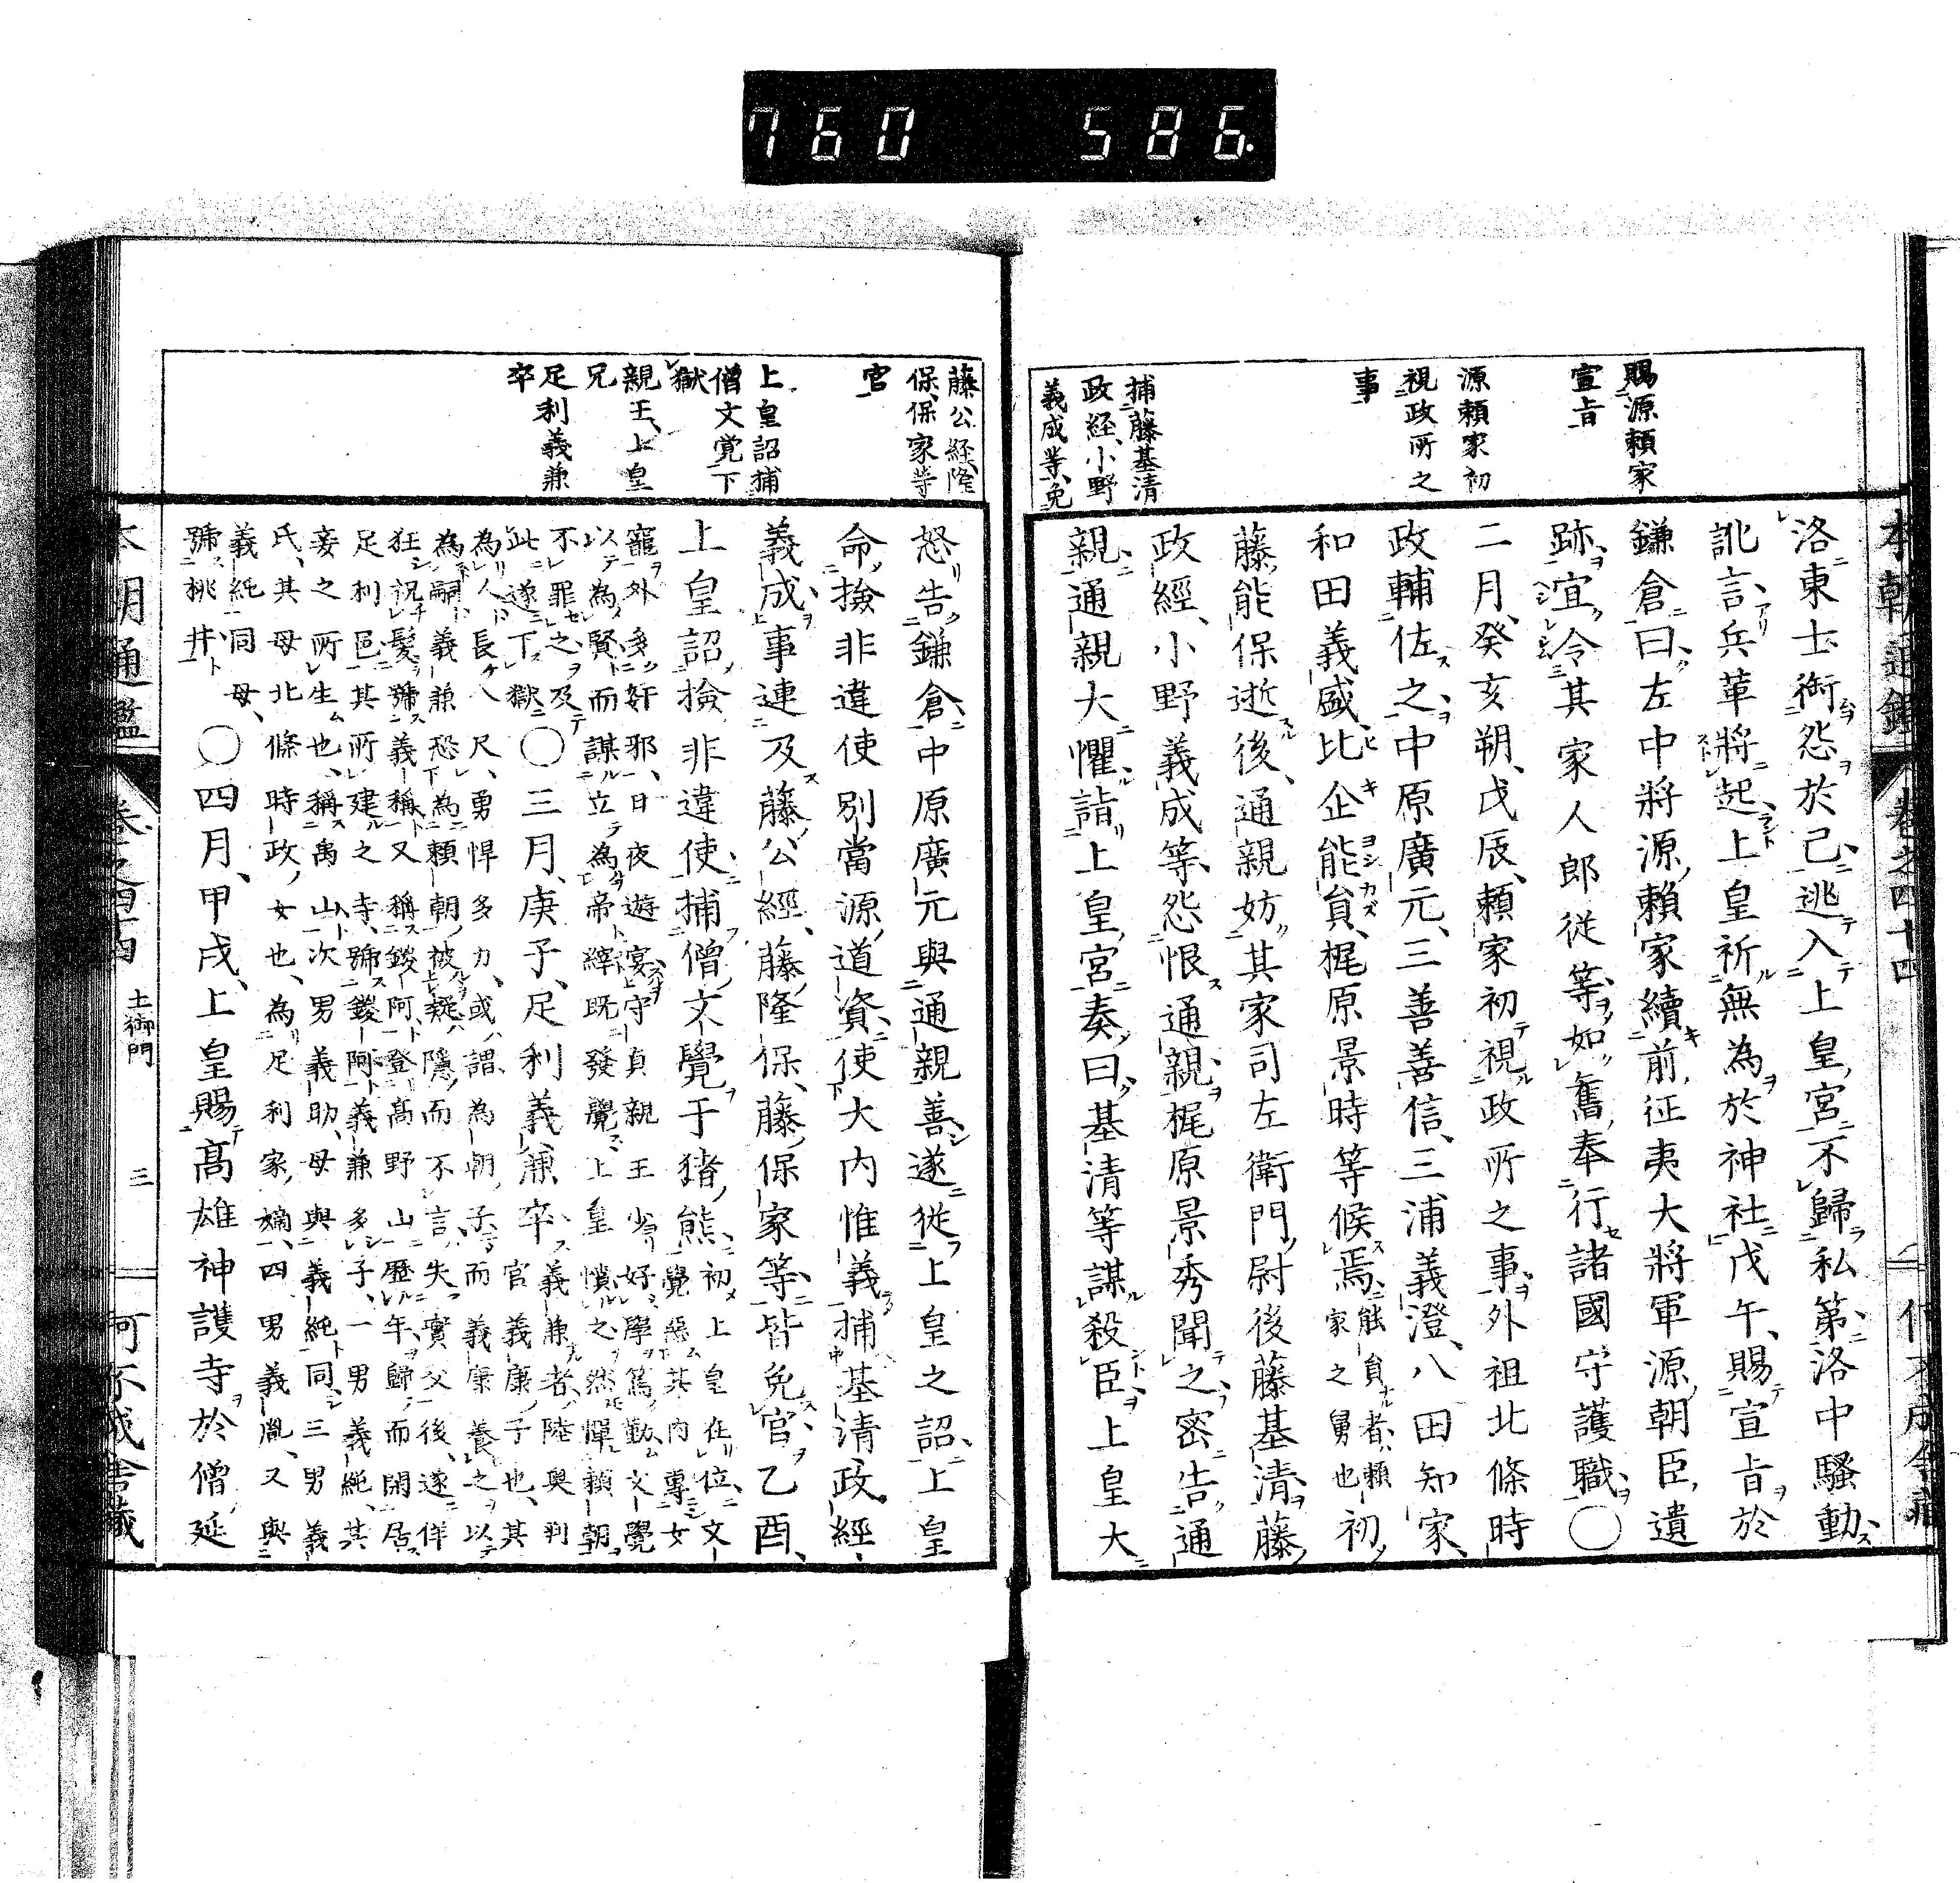 760 586.
賜源頼家
宣旨
源頼家初
視政所之
事
捕藤基清
政経、小野
義成等、免
洛東士銜怨於己、逃入上皇宮、不歸私第、洛中騷動、
訛言、兵革將起、上皇祈無為於神社、戊午、賜宣旨於
鎌倉曰、左中將源頼家續前征夷大將軍源朝臣遺
跡、宜令其家人郎従等、如舊奉行諸國守護職、〇
二月、癸亥朔、戊辰、頼家初視政所之事、外祖北條時
政輔佐之、中原廣元、三善善信、三浦義澄、八田知家、
和田義盛、比企能員、梶原景時等候焉、能員者、頼家之舅也、初
藤能保逝後、通親妨其家司左衛門尉後藤基清、藤
政經、小野義成等、怨恨通親、梶原景秀聞之密告通
親、通親大懼、詣上皇宮奏曰、基清等謀殺臣、上皇大
藤公経、隆
保、保家等
官
上皇詔捕
僧文覚下
獄
親王、上皇
兄
足利義兼
卒
怒告鎌倉、中原廣元與通親善、遂從上皇之詔、上皇
命檢非違使別當源道資、使大内惟義捕基清、政經、
義成、事連及藤公經、藤隆保、藤保家等、皆免官、乙酉、
上皇詔檢非違使、捕僧文覺于猪熊、初上皇在位、文
覺惡其内專女
寵外多奸邪、日夜遊宴、守貞親王少好學篤勤、文覺
以為賢而謀立為帝、繹既發覺、上皇憤之、然憚頼朝
不罪之、及
此遂下獄、
〇三月、庚子、足利義兼卒、義兼者、陸奥判
官義康子也、其
為人長八尺、勇悍多力、或謂為朝子、而義康養之以
為嗣、義兼恐下為頼朝被疑、隱而不言、失實父後、遂佯
狂祝髪號義稱、又稱鑁阿、登高野山、歴年歸、而閑居
足利邑、其所建之寺、號鑁阿、義兼多子、一男義純、其
妾之所生也、稱畠山、次男義助、母與義純同、三男義
氏、其母北條時政女也、為足利家嫡、四男義胤、又與
義純同母、
號桃井、
〇四月、甲戌、上皇賜高雄神護寺於僧延
本朝通鑑 卷之四十四 土御門 三